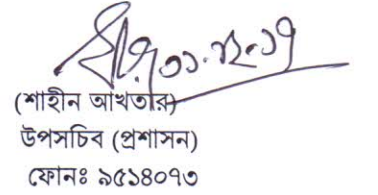 ০১.১২.১৭
(শাহীন আখতার)
উপসচিব (প্রশাসন)
ফোনঃ ৯৫১৪০৭৩